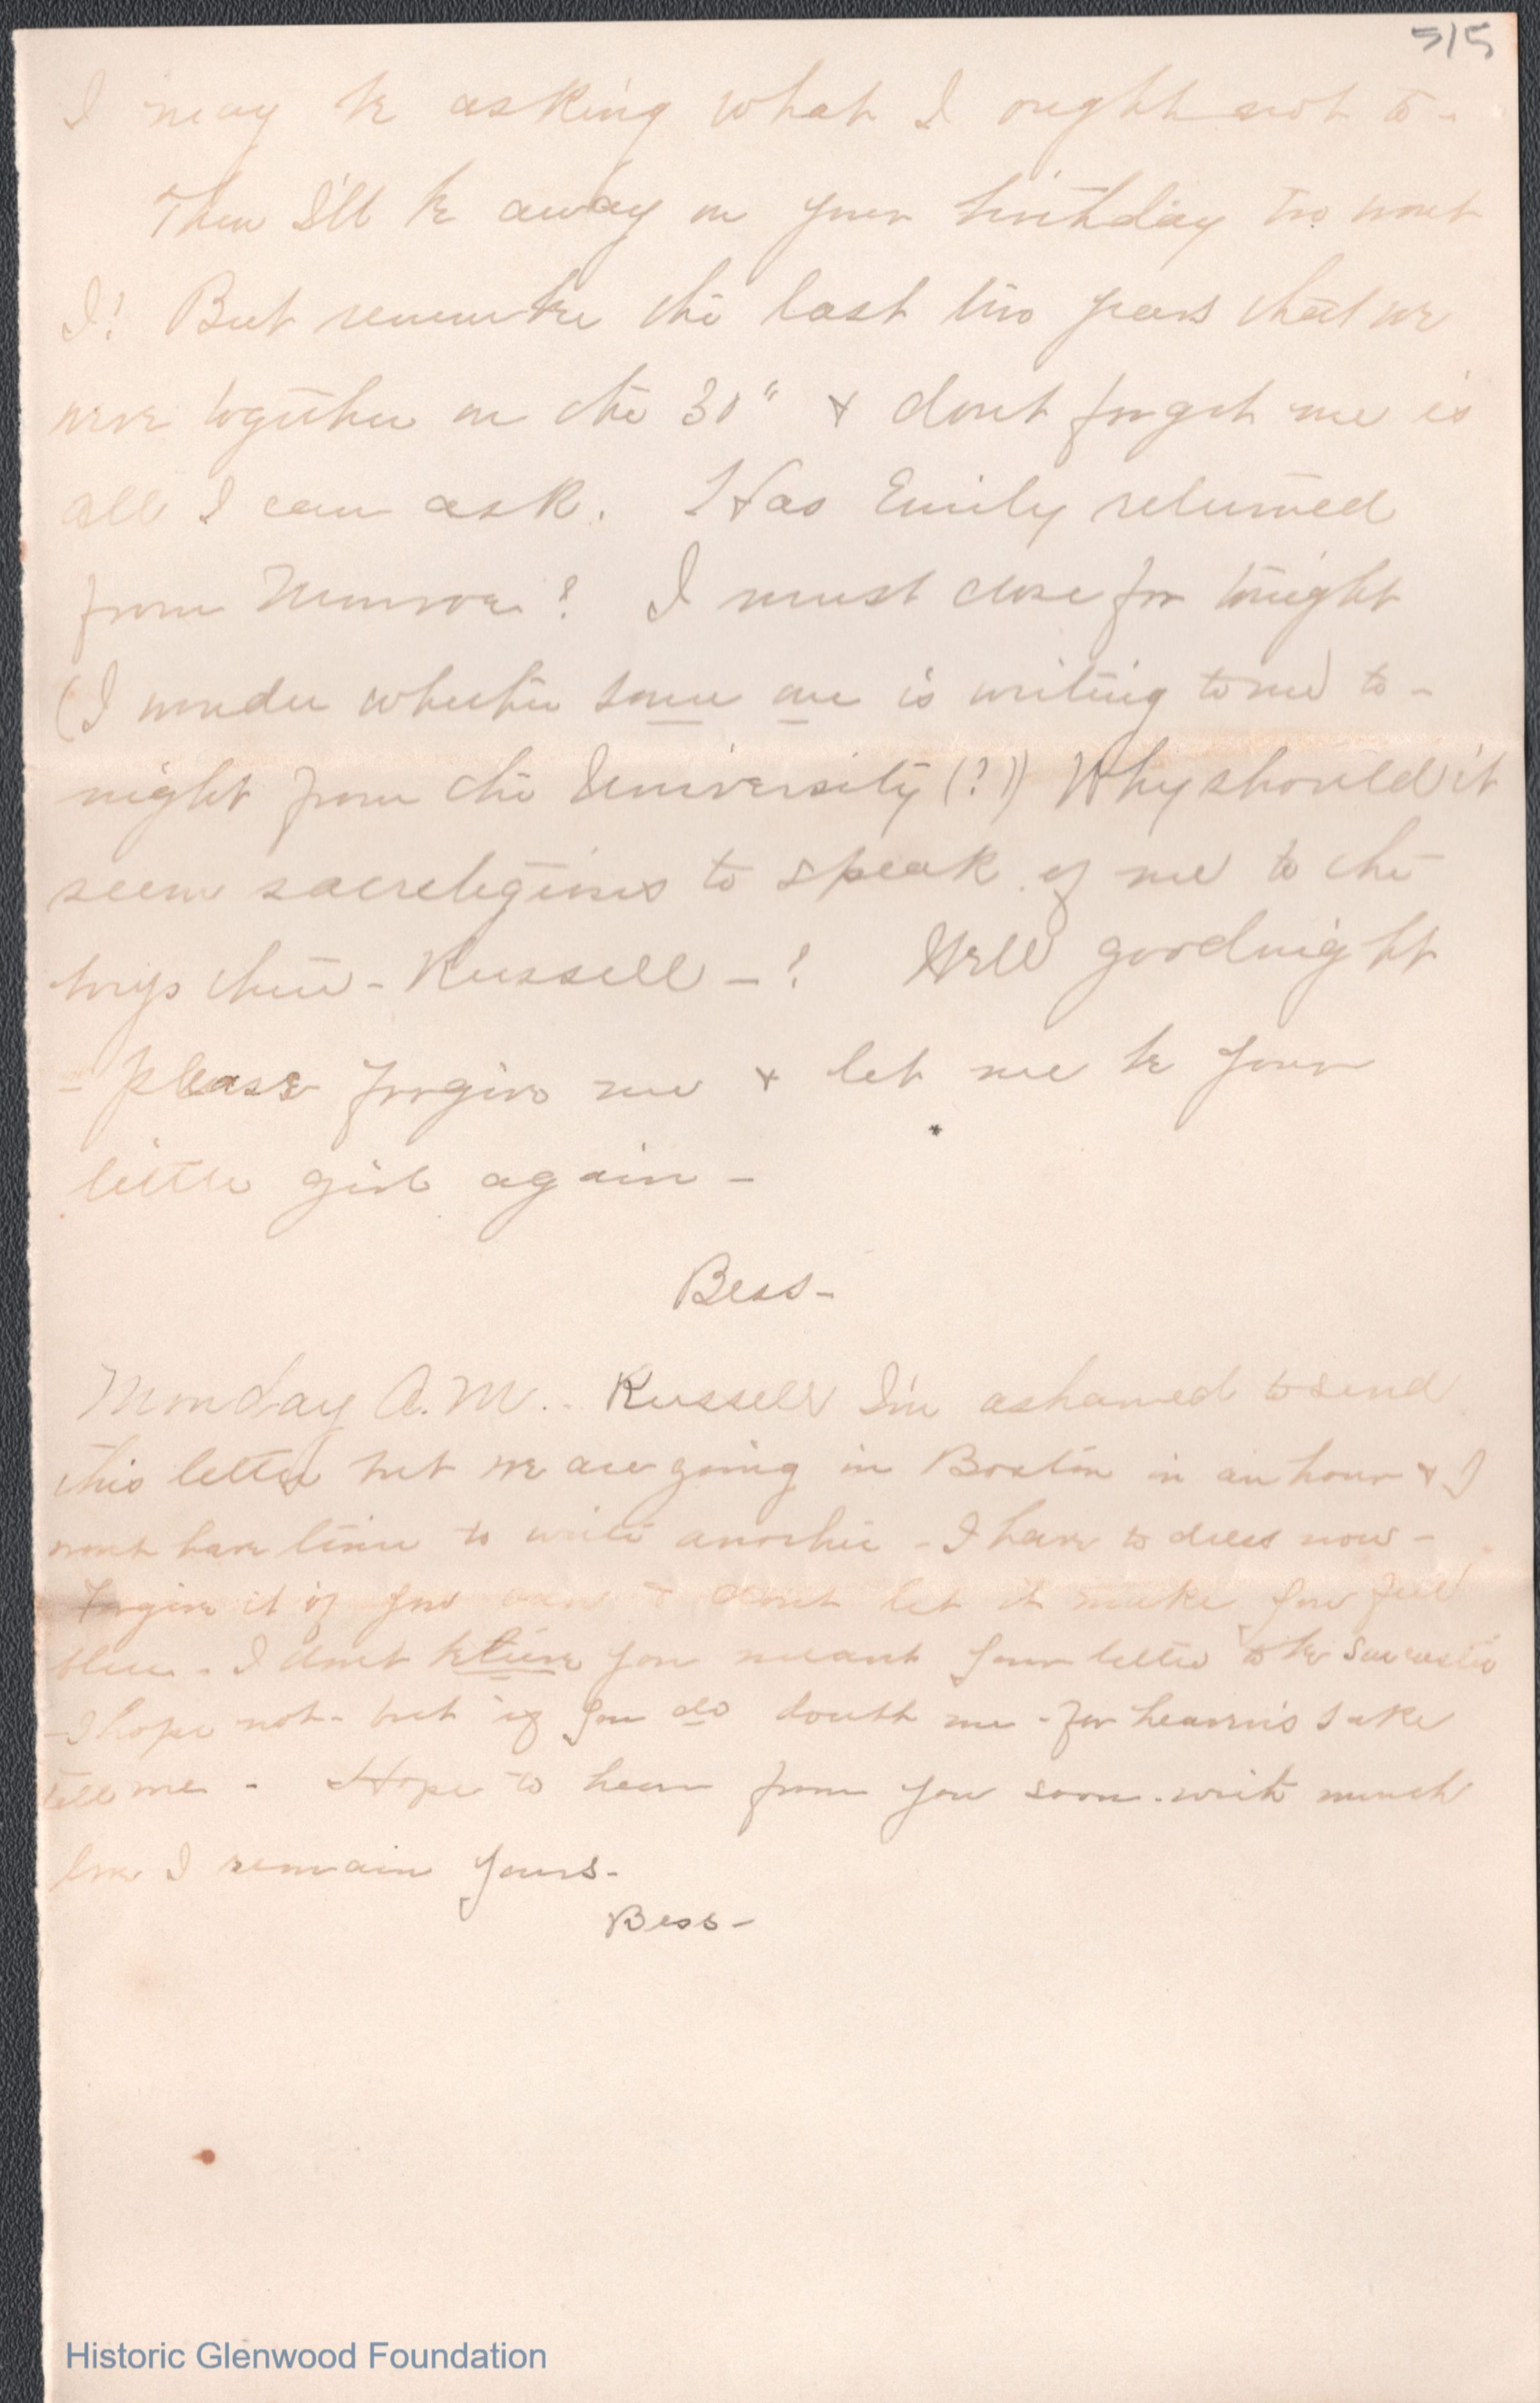 5/5
I may be asking what I ought not to -
Then I'll be away on your birthday too wont
I? But remember the last two years that we
were together on the 30" & dont forget me is
all I can ask. Has Emily returned
from Munroe? I must close for tonight
(I wonder whether some one is writing to me to-
night from the University (?)) Why should it
seem sacreligious to speak of me to the
boys there - Russell - ? Well goodnight
- please forgive me & let me be your
little girl again -
Bess -
Monday A.M. . Russell I'm ashamed to send
this letter but we are going in Boston in an hour & I
wont have time to write another - I have to dress now -
Forgive it if you can & dont let it make you feel
blue. I dont believe you meant your letter to be sarcastic
- I hope not - but if you do doubt me - for heaven's sake
tell me - Hope to hear from you soon. with much
love I remain yours -
Bess -
Historic Glenwood Foundation